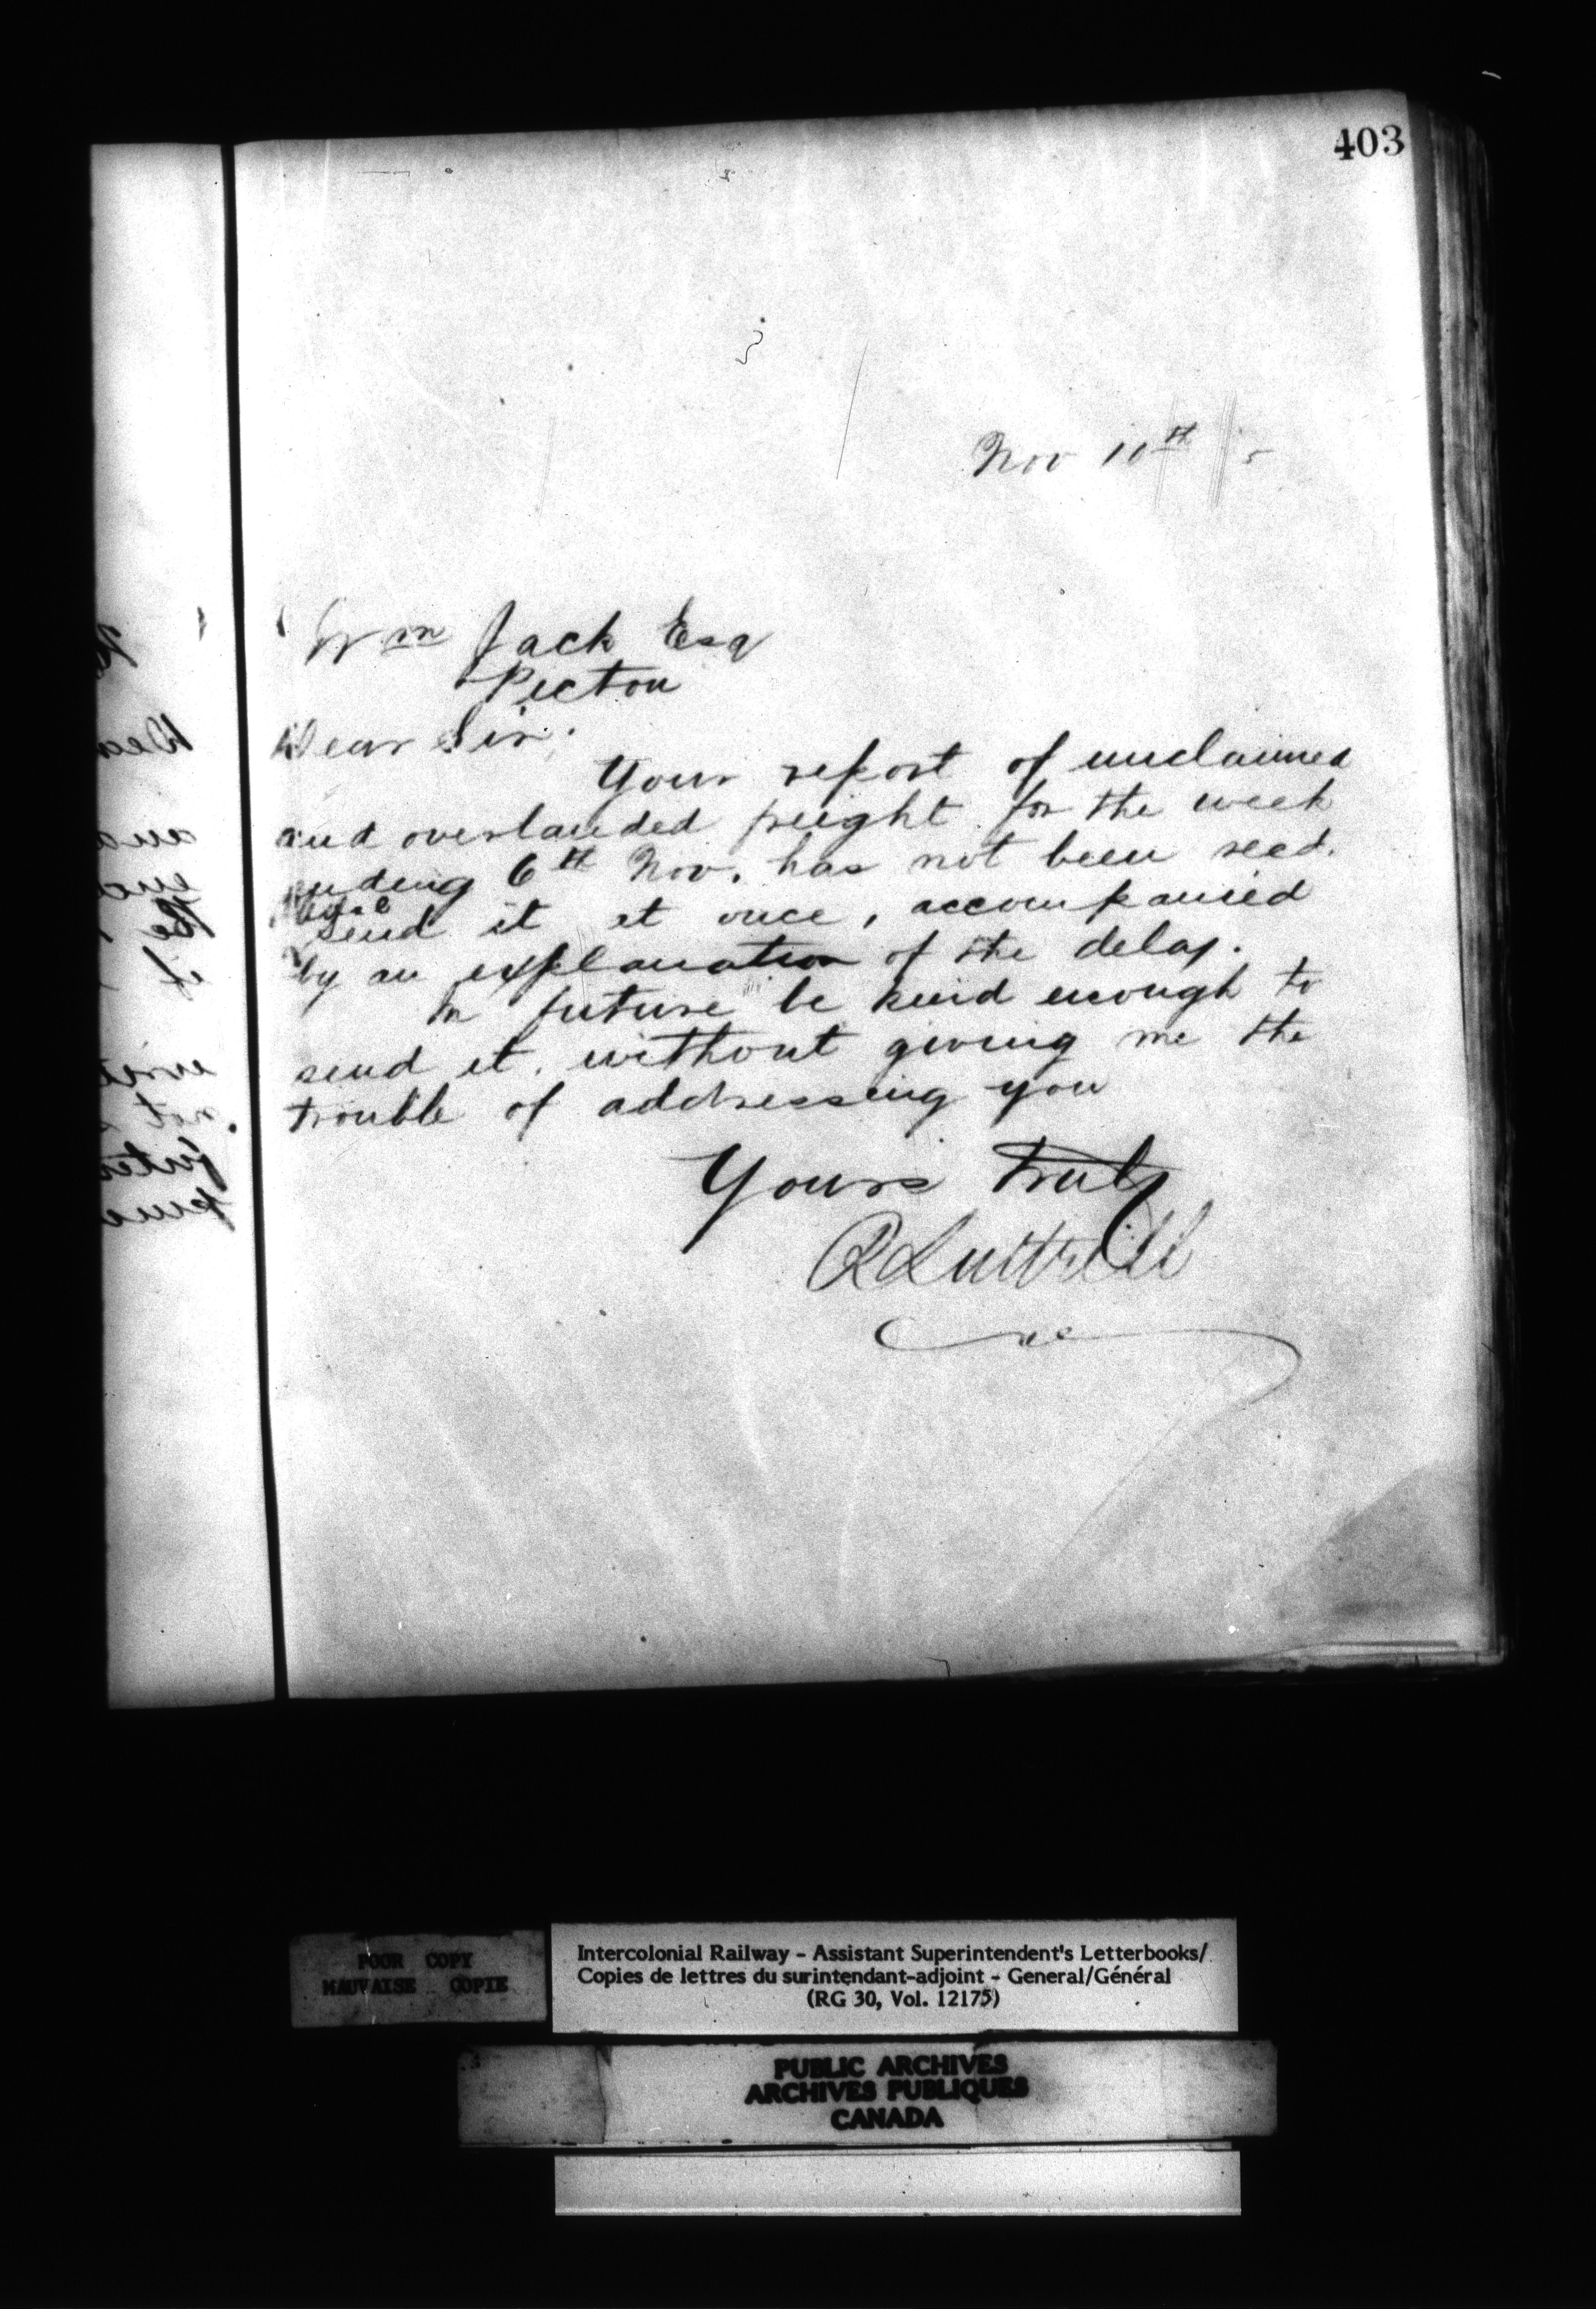 403
Nov 10th 5
Wm Jack Esq
Pictou
Dear Sir.
Your report of unclaimed
and overlanded freight for the week
ending 6th Nov. has not been recd.
Please
send it at once, accompanied
by an explanation of the delay.
In future be kind enough to
send it, without giving me the
trouble of addressing you
Yours truly
R Luttrell
POOR COPY
MAUVAISE COPIE
Intercolonial Railway - Assistant Superintendent's Letterbooks/
Copies de lettres du surintendant-adjoint - General/Général
(RG 30, Vol. 12175)
PUBLIC ARCHIVES
ARCHIVES PUBLIQUES
CANADA